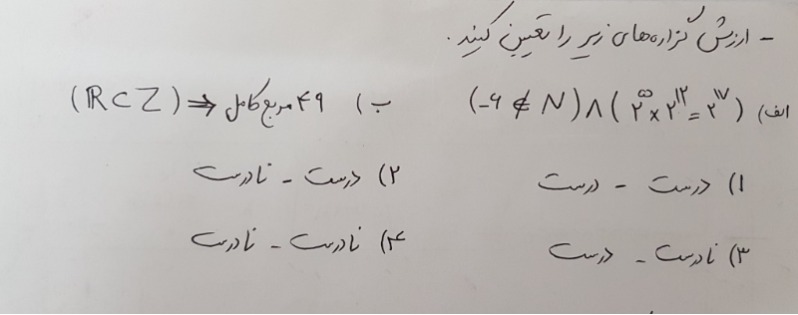 - ارزش گزاره‌های زیر را تعیین کنید.
الف) (-۶ ∉ N) ∧ (۲^۵ × ۲^۱۲ = ۲^۱۷) ب) ۴۹ مربع کامل ⇒ (ℝ ⊂ Z)
۱) درست - درست ۲) درست - نادرست
۳) نادرست - درست ۴) نادرست - نادرست